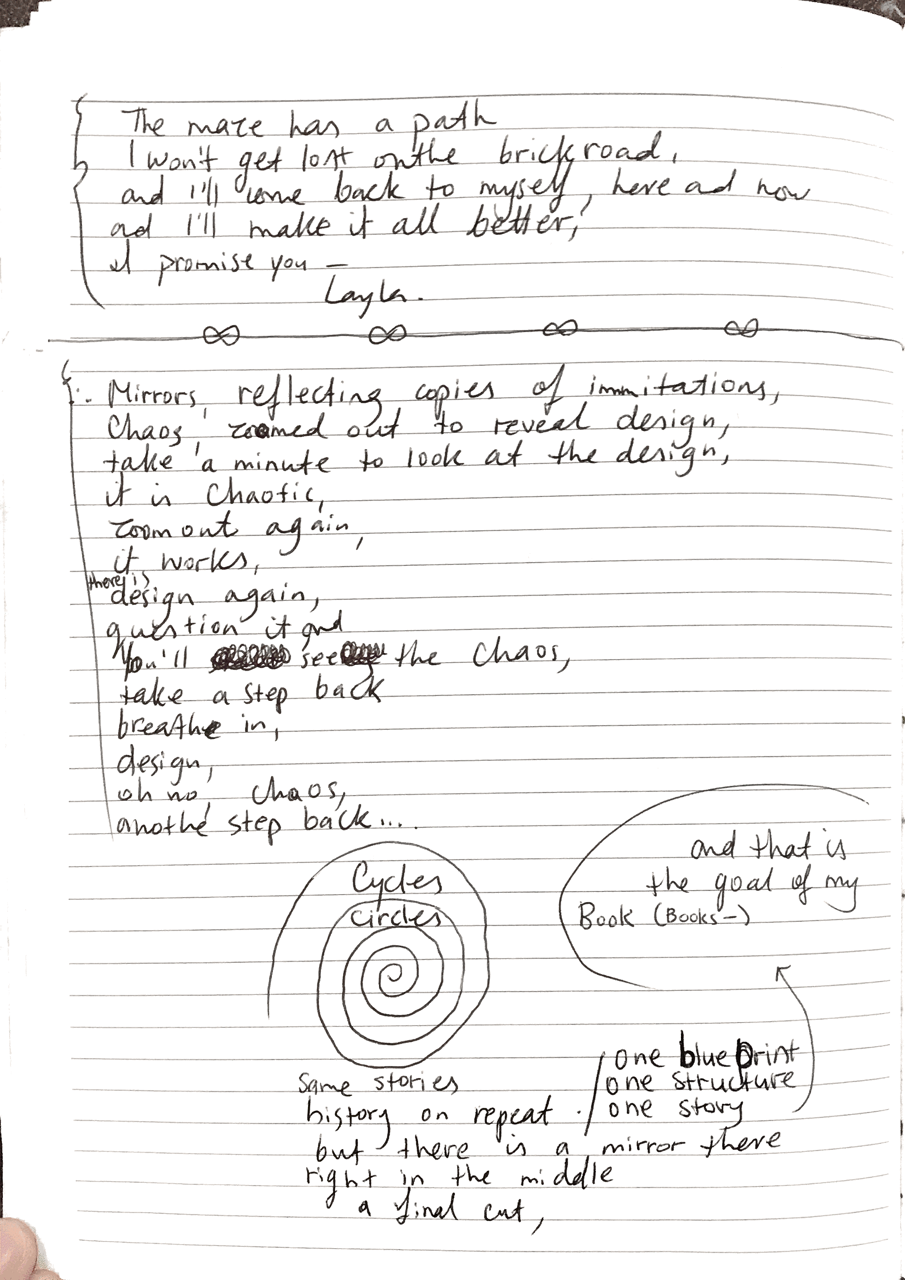 The maze has a path
I won't get lost on the brick road,
and I'll come back to myself, here ad now
ad I'll make it all better,
I promise you —
Layla.
∞ ∞ ∞ ∞
Mirrors, reflecting copies of immitations,
Chaos, zoomed out to reveal design,
take a minute to look at the design,
it is Chaotic,
zoom out again,
it works,
there is
design again,
question it and
You'll see the Chaos,
take a step back
breathe in,
design,
oh no, chaos,
anothe step back...
Cycles
circles
and that is
the goal of my
Book (Books-)
Same stories
history on repeat.
one blueprint
one structure
one story
but there is a mirror there
right in the middle
a final cut,